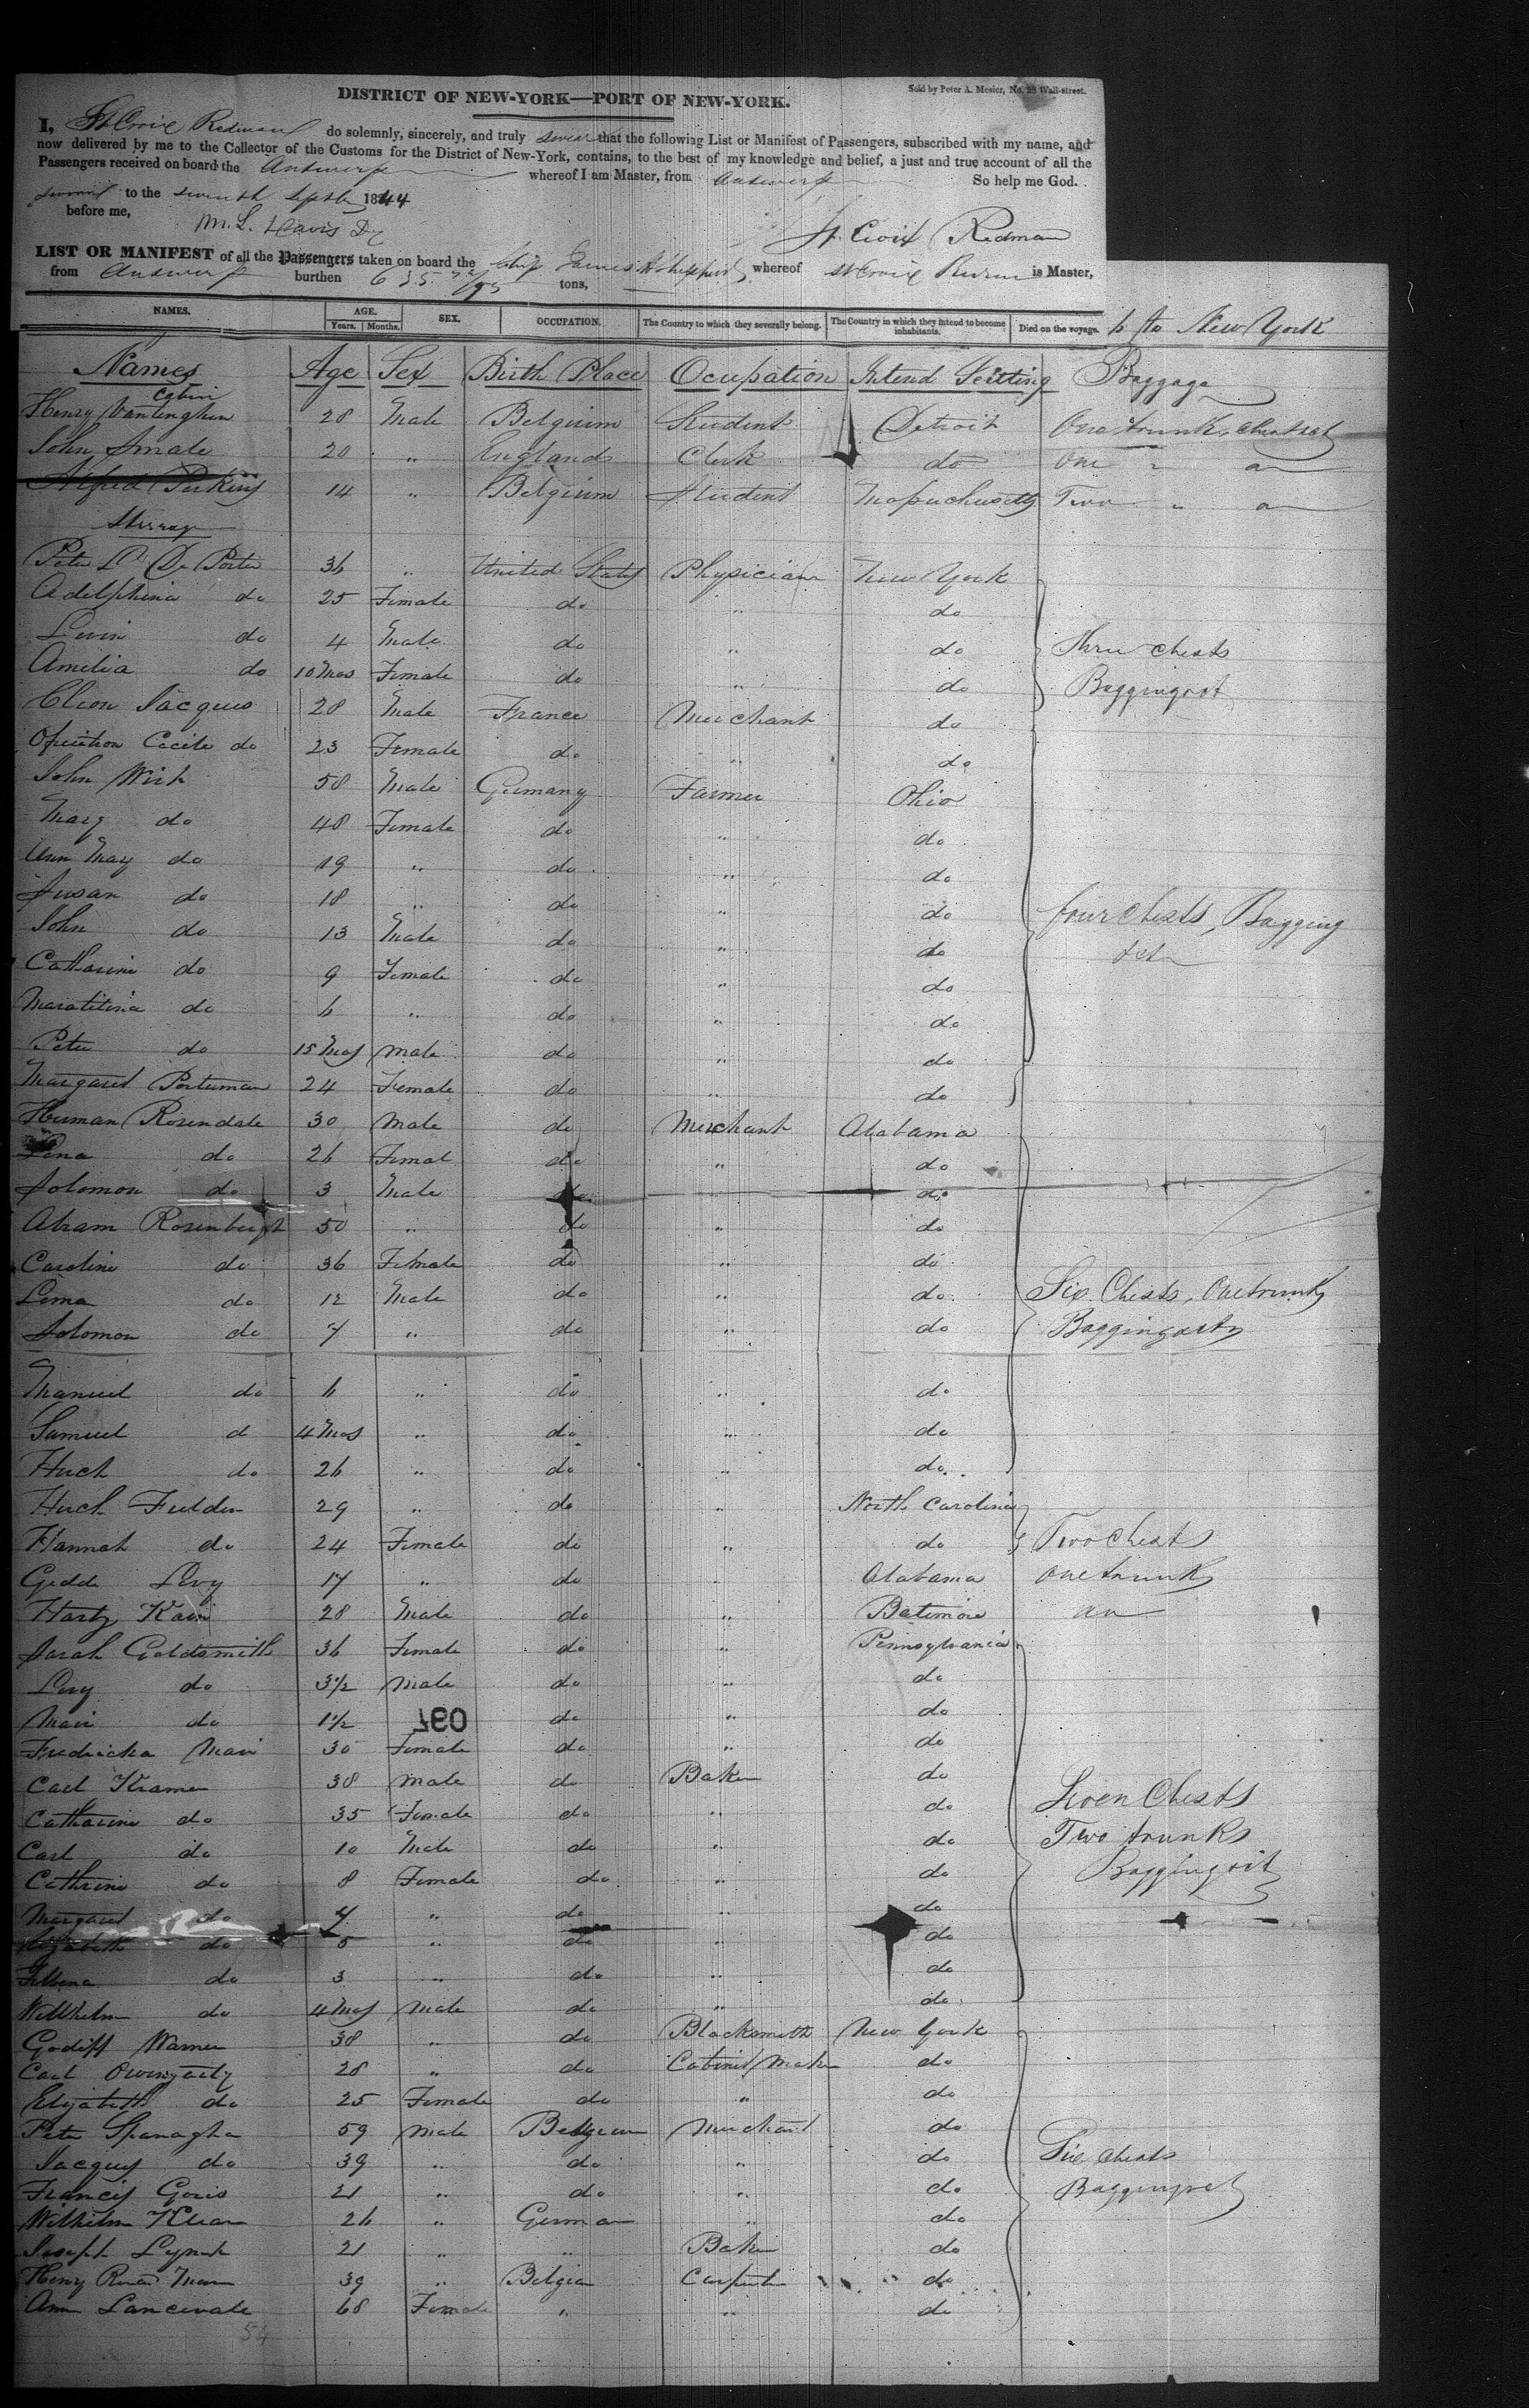 DISTRICT OF NEW-YORK—PORT OF NEW-YORK.
Sold by Peter A. Mesier, No. 28 Wall-street.
I, St Croix Redman do solemnly, sincerely, and truly swear that the following List or Manifest of Passengers, subscribed with my name, and
now delivered by me to the Collector of the Customs for the District of New-York, contains, to the best of my knowledge and belief, a just and true account of all the
Passengers received on board the Antwerp whereof I am Master, from Antwerp So help me God.
to the seventh Septbr 1844
before me,
M. L. Davis
St Croix Redman
LIST OR MANIFEST of all the Passengers taken on board the Ship James H Shepherd whereof St Croix Redman is Master,
from Antwerp burthen 635 /95 tons,
NAMES. AGE. SEX. OCCUPATION. The Country to which they severally belong. The Country in which they intend to become inhabitants. Died on the voyage. to New York
Years. Months.
Names Age Sex Birth Place Ocupation Intend Settling Baggage
Cabin
Henry 28 Male Belgium Student Detroit One trunk
John Smale 20 " England Clerk do One " do
Alfred Perkins 14 " Belgium Student Massachusetts Two " do
Steerage
Peter De Porter 36 " United States Physician New York
Adelphina do 25 Female do " do
Levin do 4 Male do " do Three Chests
Amelia do 10 Mos Female do " do
Cleon Jacques 28 Male France Merchant do
Cecile do 23 Female do " do
John Wirk 58 Male Germany Farmer Ohio
Mary do 48 Female do " do
Ann May do 19 " do " do
Susan do 18 " do " do four Chests, Bagging
John do 13 Male do " do
Catharine do 9 Female do " do
do 6 " do " do
Peter do 15 Mos Male do " do
Margaret Portuman 24 Female do " do
Herman Rosendale 30 Male do Merchant Alabama
Lena do 26 Femal do " do
Solomon do 3 Male do " do
Abram Rosenburgh 50 " do " do
Caroline do 36 Female do " do
Lema do 12 Male do " do Six Chests, One trunk
Solomon do 7 " do " do
Manuel do 6 " do " do
Samuel d 4 Mos " do " do
Huch do 26 " do " do
Huch Fulder 29 " do " North Carolina
Hannah do 24 Female do " do Two Chests
Gedde Levy 17 " do " Alabama One trunk
Hartz Kain 28 Male do " Batimore do
Sarah Goldsmith 36 Female do " Pennsylvania
Levy do 3½ Male do " do
Mari do 1½ 097 do " do
Fredricka Mari 30 Female do " do
Carl Kramer 38 Male do Baker do Seven Chests
Catharine do 35 Female do " do Two trunks
Carl do 10 Male do " do
Cathrine do 8 Female do " do
Margaret do 7 " do " do
Elizabeth do 5 " do " do
do 3 " do " do
Wilhelm do 4 Mos Male do " do
Godiff Warner 38 " do Blacksmith New York
Carl 28 " do Cabinet Maker do
Elizabeth do 25 Female do " do
Peter Spanagha 59 Male Belgian Merchant do
Jacques do 39 " do " do Six Chests
Francis Goris 21 " do " do
Wilhelm 26 " German " do
Joseph Lynch 21 " " Baker do
Henry 39 " Belgian Carpenter do
Ann Lancenale 68 Female " " do
54